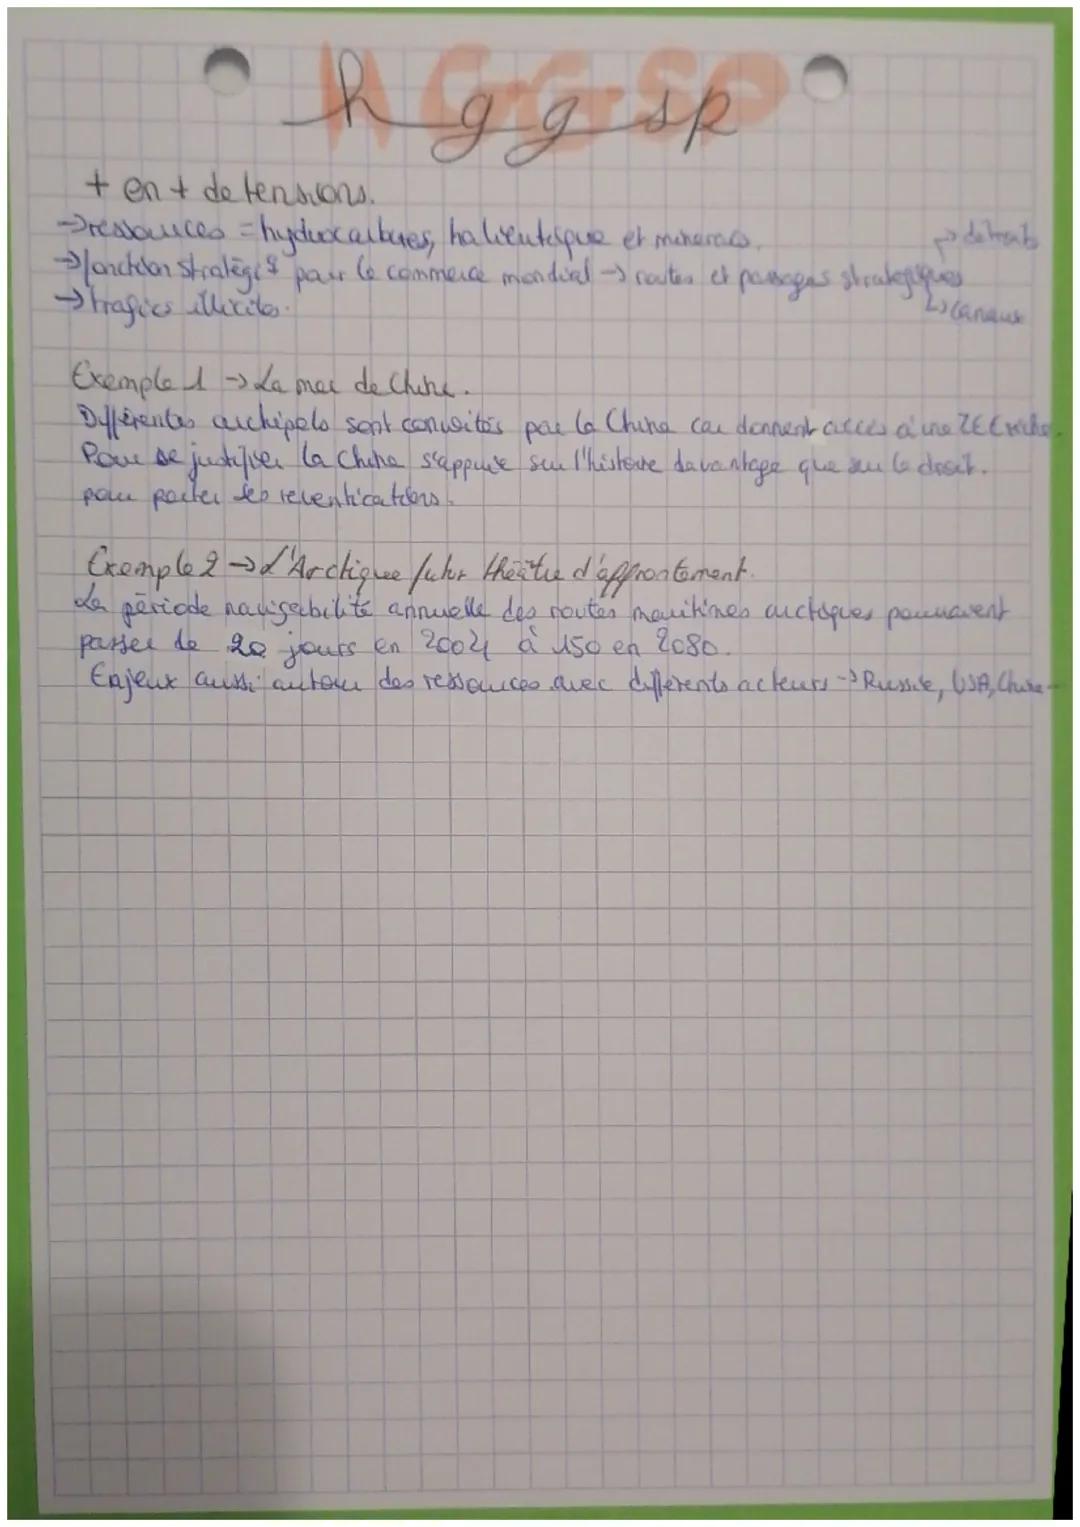 HGGSP
h g g sp
+ en + de tensions.
→ ressources = hydrocarbures, halieutique et minerais.
→ détroits
→ fonction stratégiq pour le commerce mondial → routes et passages stratégiques
↳ canaux
→ trafics illicites.
Exemple 1 → La mer de Chine.
Différentes archipels sont convoités par la Chine car donnent accès à une ZEE riche.
Pour se justifier la Chine s'appuie sur l'histoire davantage que sur le droit.
pour porter ses revendications.
Exemple 2 → L'Arctique futur théâtre d'affrontement.
La période navigabilité annuelle des routes maritimes arctiques pourraient
passer de 20 jours en 2004 à 150 en 2080.
Enjeux aussi autour des ressources avec différents acteurs → Russie, USA, Chine